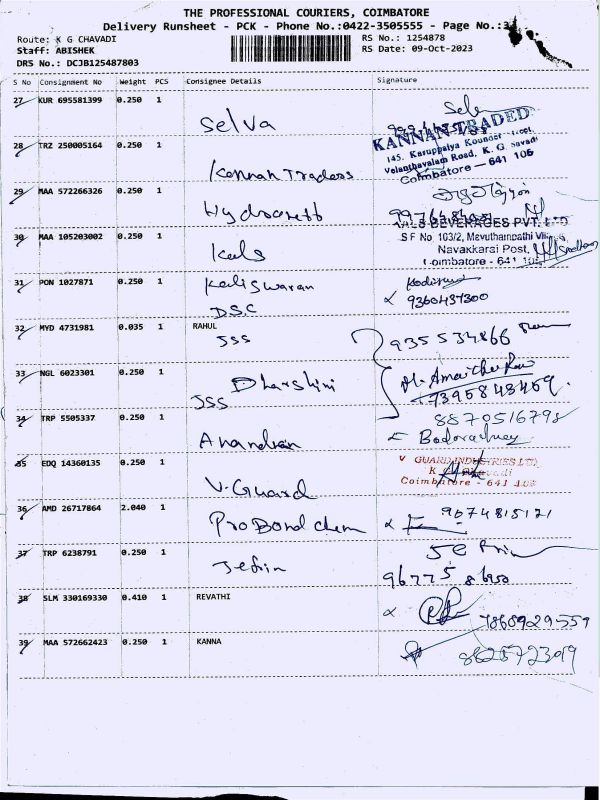 THE PROFESSIONAL COURIERS, COIMBATORE
Delivery Runsheet - PCK - Phone No.:0422-3505555 - Page No.:3
Route: K G CHAVADI
RS No.: 1254878
Staff: ABISHEK
RS Date: 09-Oct-2023
DRS No.: DCJB125487803
S No Consignment No Weight PCS Consignee Details Signature
27 KUR 695581399 0.250 1
Selva
KANNAN TRADED
28 TRZ 250005164 0.250 1
145, Karuppaiya Kounder
Velanthavalam Road, K. G.
Coimbatore - 641 105
Kannan Traders
29 MAA 572266326 0.250 1
30 MAA 105203002 0.250 1
BEVERAGES PVT. LTD
S F No. 103/2, Mavuthampathi
Navakkarai Post,
Kals
31 PON 1027871 0.250 1
Kaliswaran
9360437300
DSC
32 MYD 4731981 0.035 1 RAHUL
JSS
935534866
33 NGL 6023301 0.250 1
Dharshini
7395843469.
JSS
34 TRP 5505337 0.250 1
8870516798
Anandran
35 EDQ 14360135 0.250 1
V GUARD INDUSTRIES LTD
Coimbatore - 641 105
V. Guard
36 AMD 26717864 2.040 1
9674815121
Pro Bond chem
37 TRP 6238791 0.250 1
Jefrin
38 SLM 330169330 0.410 1 REVATHI
7868929559
39 MAA 572662423 0.250 1 KANNA